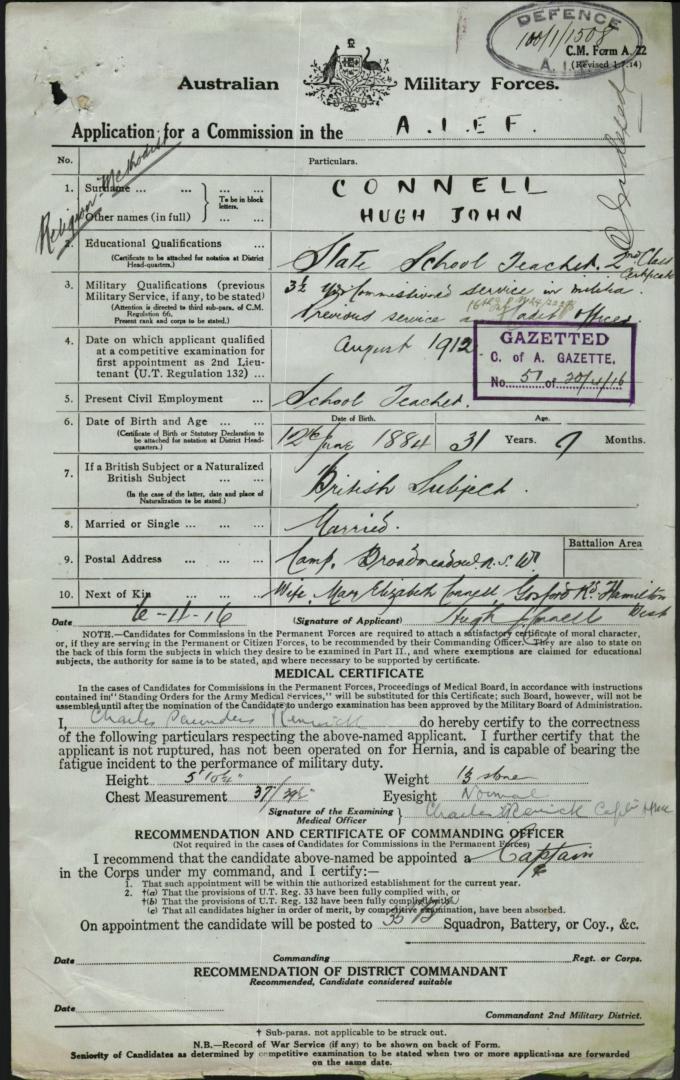 DEFENCE
100/1/1508
A.I.
C.M. Form A. 22
(Revised 1.7.14)
Australian Military Forces.
Application for a Commission in the A.I.E.F.
No. Particulars.
Religion Methodist
1. Surname ... ... ... ... } To be in block letters. CONNELL
Other names (in full) HUGH JOHN
2. Educational Qualifications ... State School Teacher. 2nd Class Certificate
(Certificate to be attached for notation at District Head-quarters.)
3. Military Qualifications (previous Military Service, if any, to be stated) 3½ yrs Commissioned service in militia.
(Attention is directed to third sub-para. of C.M. Regulation 66. Present rank and corps to be stated.)
Previous service Cadet officer.
4. Date on which applicant qualified at a competitive examination for first appointment as 2nd Lieutenant (U.T. Regulation 132) ... August 1912
GAZETTED
C. of A. GAZETTE.
No. 51 of 20/4/16
5. Present Civil Employment ... School Teacher.
6. Date of Birth and Age ... ...
(Certificate of Birth or Statutory Declaration to be attached for notation at District Head-quarters.)
Date of Birth. Age.
12th June 1884 31 Years. 9 Months.
7. If a British Subject or a Naturalized British Subject ... ... ... British Subject.
(In the case of the latter, date and place of Naturalization to be stated.)
8. Married or Single ... ... ... Married.
Battalion Area
9. Postal Address ... ... ... Camp. Broadmeadow. N.S.W.
10. Next of Kin ... ... ... Wife. Mary Elizabeth Connell Gosford Rd. Hamilton West
Date 6-4-16 (Signature of Applicant) Hugh J. Connell
NOTE.—Candidates for Commissions in the Permanent Forces are required to attach a satisfactory certificate of moral character,
or, if they are serving in the Permanent or Citizen Forces, to be recommended by their Commanding Officer. They are also to state on
the back of this form the subjects in which they desire to be examined in Part II., and where exemptions are claimed for educational
subjects, the authority for same is to be stated, and where necessary to be supported by certificate.
MEDICAL CERTIFICATE
In the cases of Candidates for Commissions in the Permanent Forces, Proceedings of Medical Board, in accordance with instructions
contained in "Standing Orders for the Army Medical Services," will be substituted for this Certificate; such Board, however, will not be
assembled until after the nomination of the Candidate to undergo examination has been approved by the Military Board of Administration.
I, Charles Saunders Renwick do hereby certify to the correctness
of the following particulars respecting the above-named applicant. I further certify that the
applicant is not ruptured, has not been operated on for Hernia, and is capable of bearing the
fatigue incident to the performance of military duty.
Height 5' 10¼" Weight 13 stone
Chest Measurement 37/39½" Eyesight Normal
Signature of the Examining Medical Officer } Charles Renwick Capt
RECOMMENDATION AND CERTIFICATE OF COMMANDING OFFICER
(Not required in the cases of Candidates for Commissions in the Permanent Forces)
I recommend that the candidate above-named be appointed a Captain
in the Corps under my command, and I certify:—
1. That such appointment will be within the authorized establishment for the current year.
2. †(a) That the provisions of U.T. Reg. 33 have been fully complied with, or
†(b) That the provisions of U.T. Reg. 132 have been fully complied with
(c) That all candidates higher in order of merit, by competitive examination, have been absorbed.
On appointment the candidate will be posted to 35th Squadron, Battery, or Coy., &c.
Date Commanding Regt. or Corps.
RECOMMENDATION OF DISTRICT COMMANDANT
Recommended, Candidate considered suitable
Date Commandant 2nd Military District.
† Sub-paras. not applicable to be struck out.
N.B.—Record of War Service (if any) to be shown on back of Form.
Seniority of Candidates as determined by competitive examination to be stated when two or more applications are forwarded
on the same date.